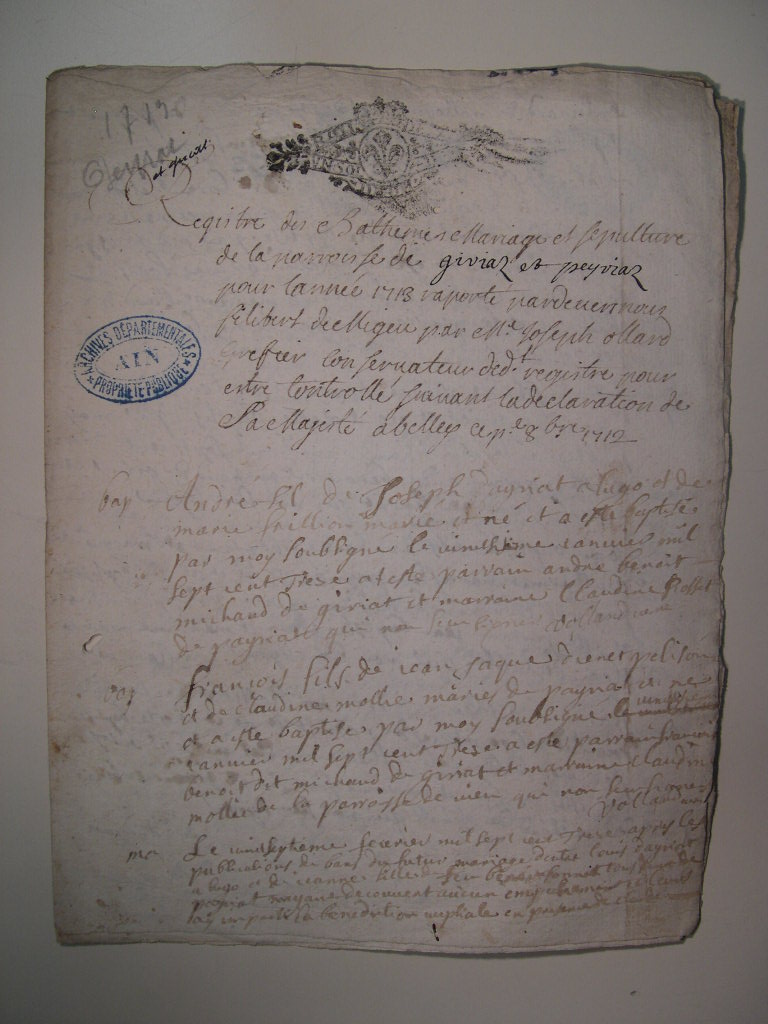 1713
Peyriat
et giriat
Registre des Bathemes Mariage et sepulture
de la parroisse de giriaz et peyriaz
pour lannée 1713 raporté pardevernous
filibert de Migeu par Me. Joseph ollard
grefier Conservateur dedt. registre pour
estre Controllé suivant la declaration de
Sa Majesté abelley ce pr. 8bre. 1712
ARCHIVES DÉPARTEMENTALES
AIN
PROPRIÉTÉ PUBLIQUE
bap André fil de Joseph payriat alugo et de
marie trillion mariés et né et a esté baptisé
par moy soubsigné le janvier mil
sept cent Trese a esté parrain andré benoit
michaud de giriat et marraine Claudine Rosset
de payriat qui non seu signer Vollard curé
bap François fils de jean jaque
et de Claudine mollie mariés de payriat et né
et a esté baptisé par moy soubsigné le
janvier mil sept cent Trese a esté parrain francois
benoit dit michaud de giriat et marraine Claudine
mollie de la parroisse de qui non seu signer
Vollard curé
ma Le vinseptieme fevrier mil sept cent Trese apres les
publications de bans du futur mariage d'entre louis payriat
a lugo et de jeanne fille de feu benoit
peyriat nayant decouvert aucun empechement
ay imparti la benediction nuptiale en presence de